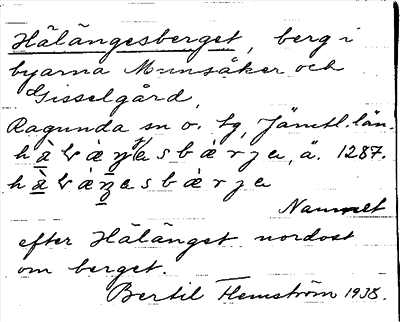 Hälängesberget, berg i
byarna Munsåker och
Gisselgård,
Ragunda sn o. tg, Jämtl. län.
ä. 1287.
Namnet
efter Hälänget nordost
om berget.
Bertil Flemström 1938.